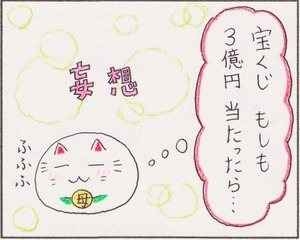 宝くじ もしも
3億円 当たったら…
妄想
ふふふ
母